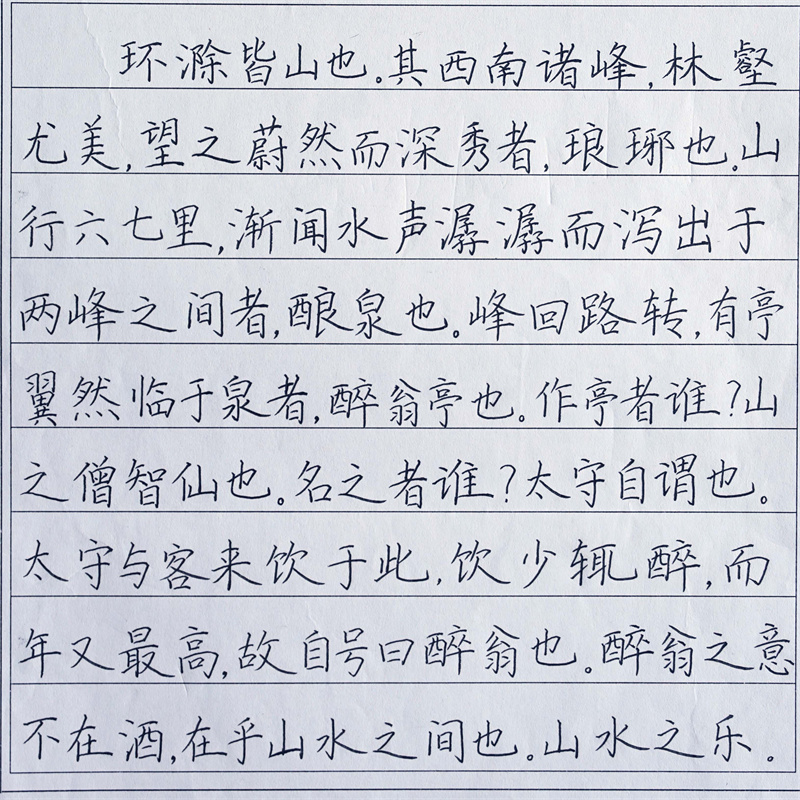 环滁皆山也。其西南诸峰,林壑
尤美,望之蔚然而深秀者,琅琊也。山
行六七里,渐闻水声潺潺而泻出于
两峰之间者,酿泉也。峰回路转,有亭
翼然临于泉者,醉翁亭也。作亭者谁?山
之僧智仙也。名之者谁?太守自谓也。
太守与客来饮于此,饮少辄醉,而
年又最高,故自号曰醉翁也。醉翁之意
不在酒,在乎山水之间也。山水之乐。